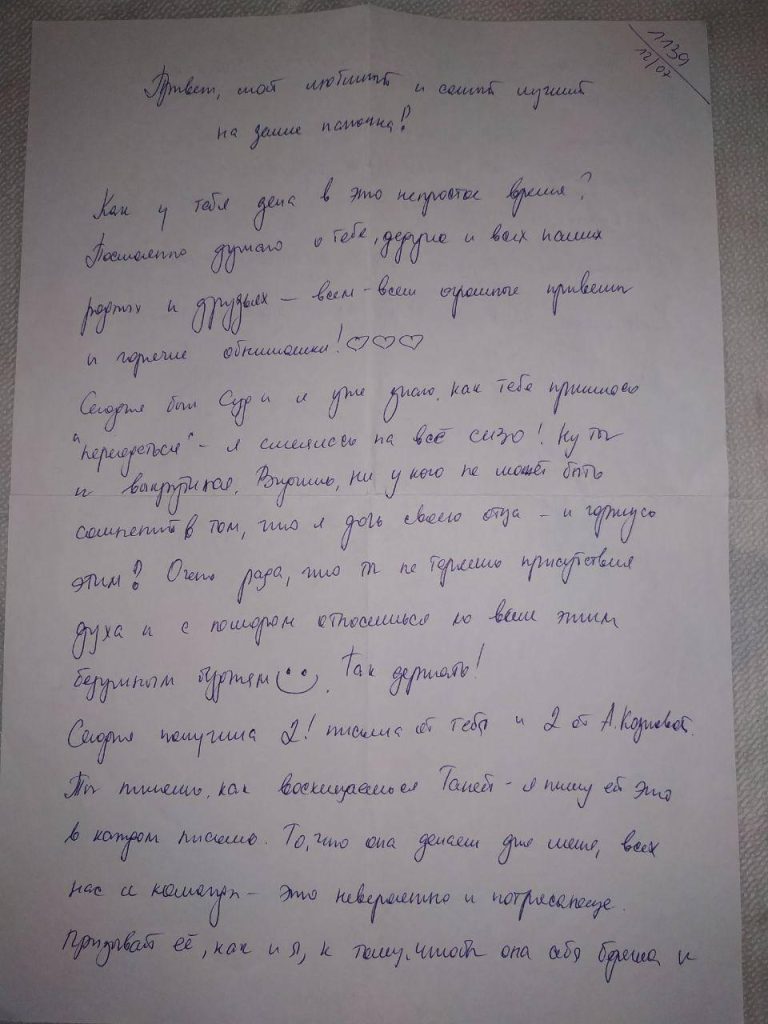 1139
12/07
Привет, мой любимый и самый лучший
на земле папочка!
Как у тебя дела в это непростое время?
Постоянно думаю о тебе, дедуле и всех наших
родных и друзьях – всем-всем огромные приветы
и горячие обнимашки! ♡♡♡
Сегодня был Суд и я уже знаю, как тебе пришлось
"переодеться" – я смеялась на всё СИЗО! Ну ты
и выкрутился. Видишь, ни у кого не может быть
сомнений в том, что я дочь своего отца – и горжусь
этим! Очень рада, что ты не теряешь присутствия
духа и с юмором относишься ко всем этим
безумным буржям. Так держать!
Сегодня получила 2! письма от тебя и 2 от А. Козловой.
Ты пишешь, как восхищаешься Таней – я пишу ей это
в каждом письме. То, что она делает для меня, всех
нас и команды – это невероятно и потрясающе.
Призывай её, как и я, к тому, чтобы она себя берегла и